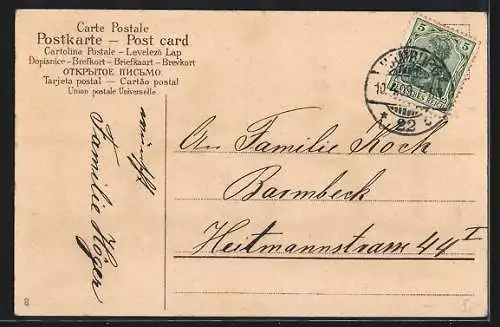 Carte Postale
Postkarte – Post card
Cartolina Postale – Levelező Lap
Dopisnice – Brefkort – Briefkaart – Brevkort
ОТКРЫТОЕ ПИСЬМО
Tarjeta postal – Cartão postal
Union postale Universelle.
5 5
22
wünscht
Familie Höger
An Familie Koch
Barmbeck
Heitmannstrasse 44 I
8